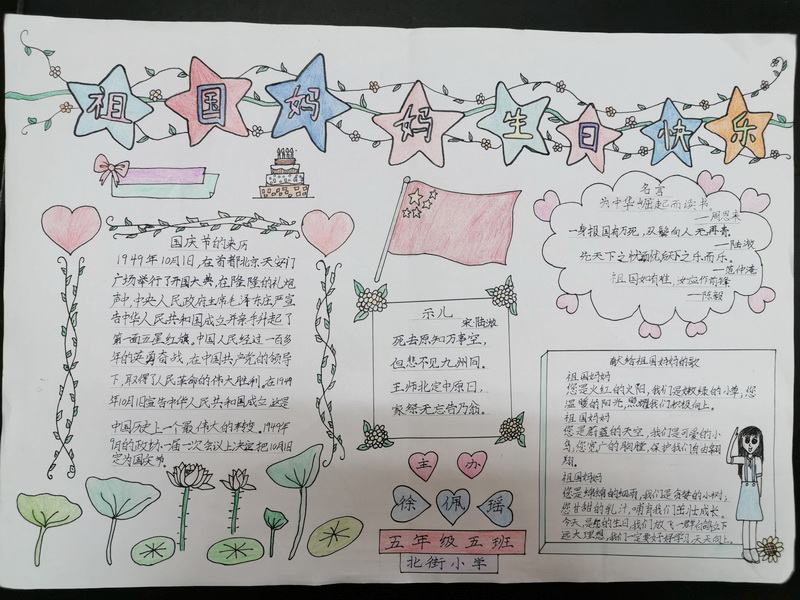 祖国妈妈生日快乐
国庆节的来历
1949年10月1日,在首都北京天安门
广场举行了开国大典,在隆隆的礼炮
声中,中央人民政府主席毛泽东庄严宣
告中华人民共和国成立并亲手升起了
第一面五星红旗。中国人民经过一百多
年的英勇奋战,在中国共产党的领导
下,取得了人民革命的伟大胜利。在1949
年10月1日宣告中华人民共和国成立,这是
中国历史上一个最伟大的转变。1949年
9月的政协一届一次会议上决定把10月1日
定为国庆节。
示儿
宋·陆游
死去原知万事空,
但悲不见九州同。
王师北定中原日,
家祭无忘告乃翁。
主办
徐佩瑶
五年级五班
北街小学
名言
为中华崛起而读书。
——周恩来
一身报国有万死,双鬓向人无再青。
——陆游
先天下之忧而忧,后天下之乐而乐。
——范仲淹
祖国如有难,汝应作前锋
——陈毅
献给祖国妈妈的歌
祖国妈妈
您是火红的太阳,我们是嫩绿的小草,您
温暖的阳光,照耀我们积极向上。
祖国妈妈
您是蔚蓝的天空,我们是可爱的小
鸟,您宽广的胸膛,保护我们自由翱
翔。
祖国妈妈
您是绵绵的细雨,我们是青翠的小树,
您甘甜的乳汁,哺育我们茁壮成长。
今天,是您的生日,我们放飞一群白鸽,立下
远大理想,我们一定要好好学习天天向上。